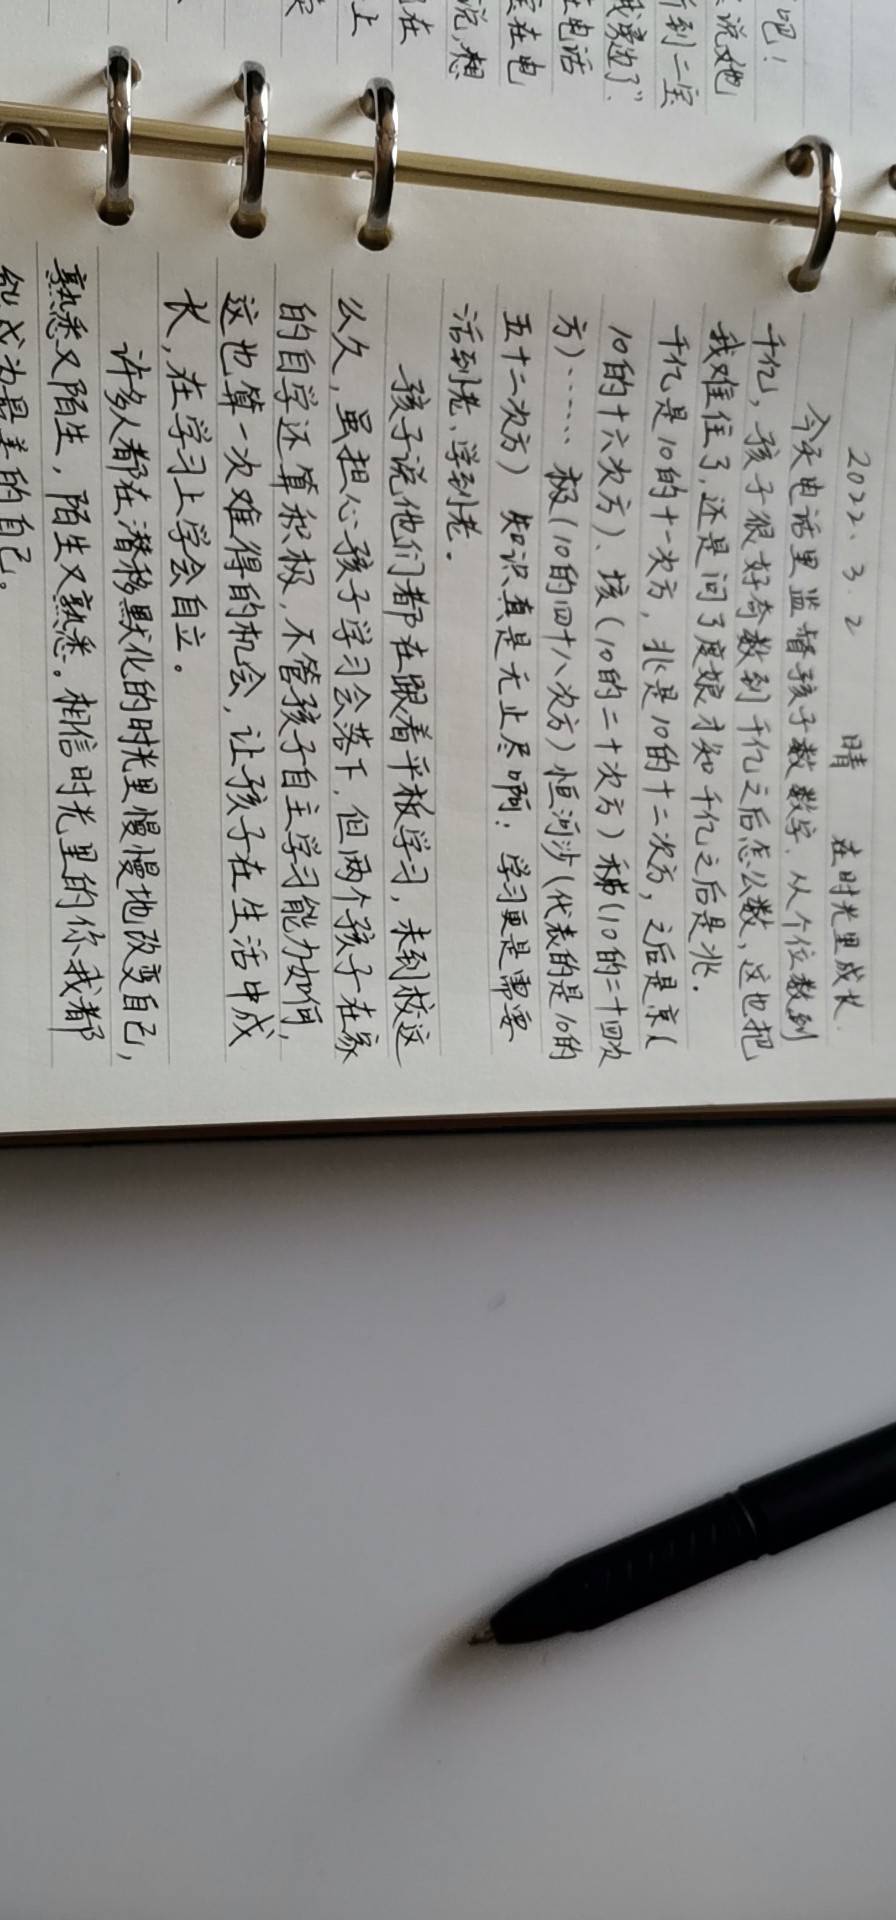 吧！
说她
听到二宝
我变边了"
在电话
在电
说,想
在
上
2022、3.2 晴 在时光里成长.
今天电话里监督孩子数数字.从个位数到
千亿，孩子很好奇数到千亿之后怎么数,这也把
我难住了,还是问了度娘才知千亿之后是兆.
千亿是10的十一次方，兆是10的十二次方，之后是京(
10的十六次方)、垓(10的二十次方)秭(10的二十四次
方)……极(10的四十八次方)恒河沙(代表的是10的
五十二次方)知识真是无止尽啊！学习更是需要
活到老、学到老。
孩子说他们都在跟着平板学习，未到校这
么久，虽担心孩子学习会落下，但两个孩子在家
的自学还算积极，不管孩子自主学习能力如何，
这也算一次难得的机会，让孩子在生活中成
长，在学习上学会自立。
许多人都在潜移默化的时光里慢慢地改变自己，
熟悉又陌生，陌生又熟悉。相信时光里的你我都
能成为最美的自己。